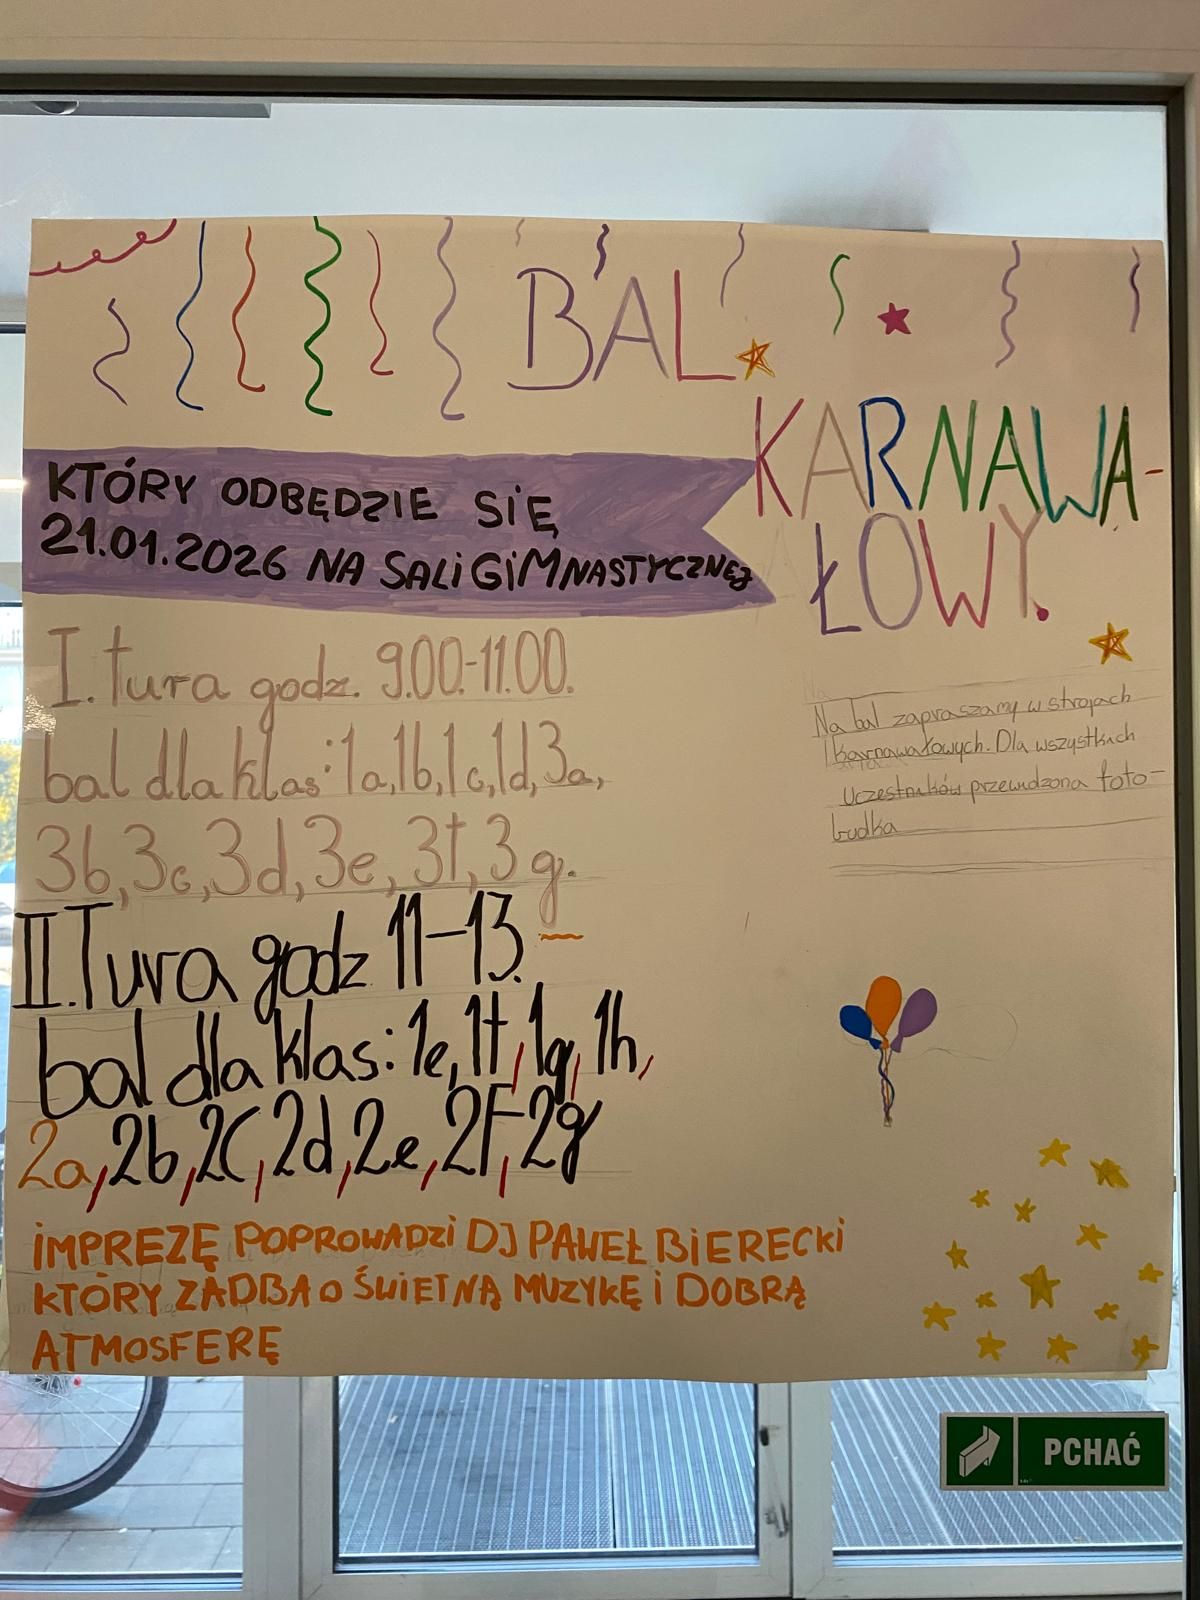 BAL
KARNAWA-
ŁOWY.
KTÓRY ODBĘDZIE SIĘ
21.01.2026 NA SALI GIMNASTYCZNEJ
I. tura godz. 9.00.-11.00.
bal dla klas: 1a, 1b, 1c, 1d, 3a,
3b, 3c, 3d, 3e, 3f, 3g.
II. Tura godz 11-13.
bal dla klas: 1e, 1f, 1g, 1h,
2a, 2b, 2C, 2d, 2e, 2F, 2g
IMPREZĘ POPROWADZI DJ PAWEŁ BIERECKI
KTÓRY ZADBA O ŚWIETNĄ MUZYKĘ I DOBRĄ
ATMOSFERĘ
Na bal zapraszamy w strojach
karnawałowych. Dla wszystkich
uczestników przewidzona foto-
budka
PCHAĆ